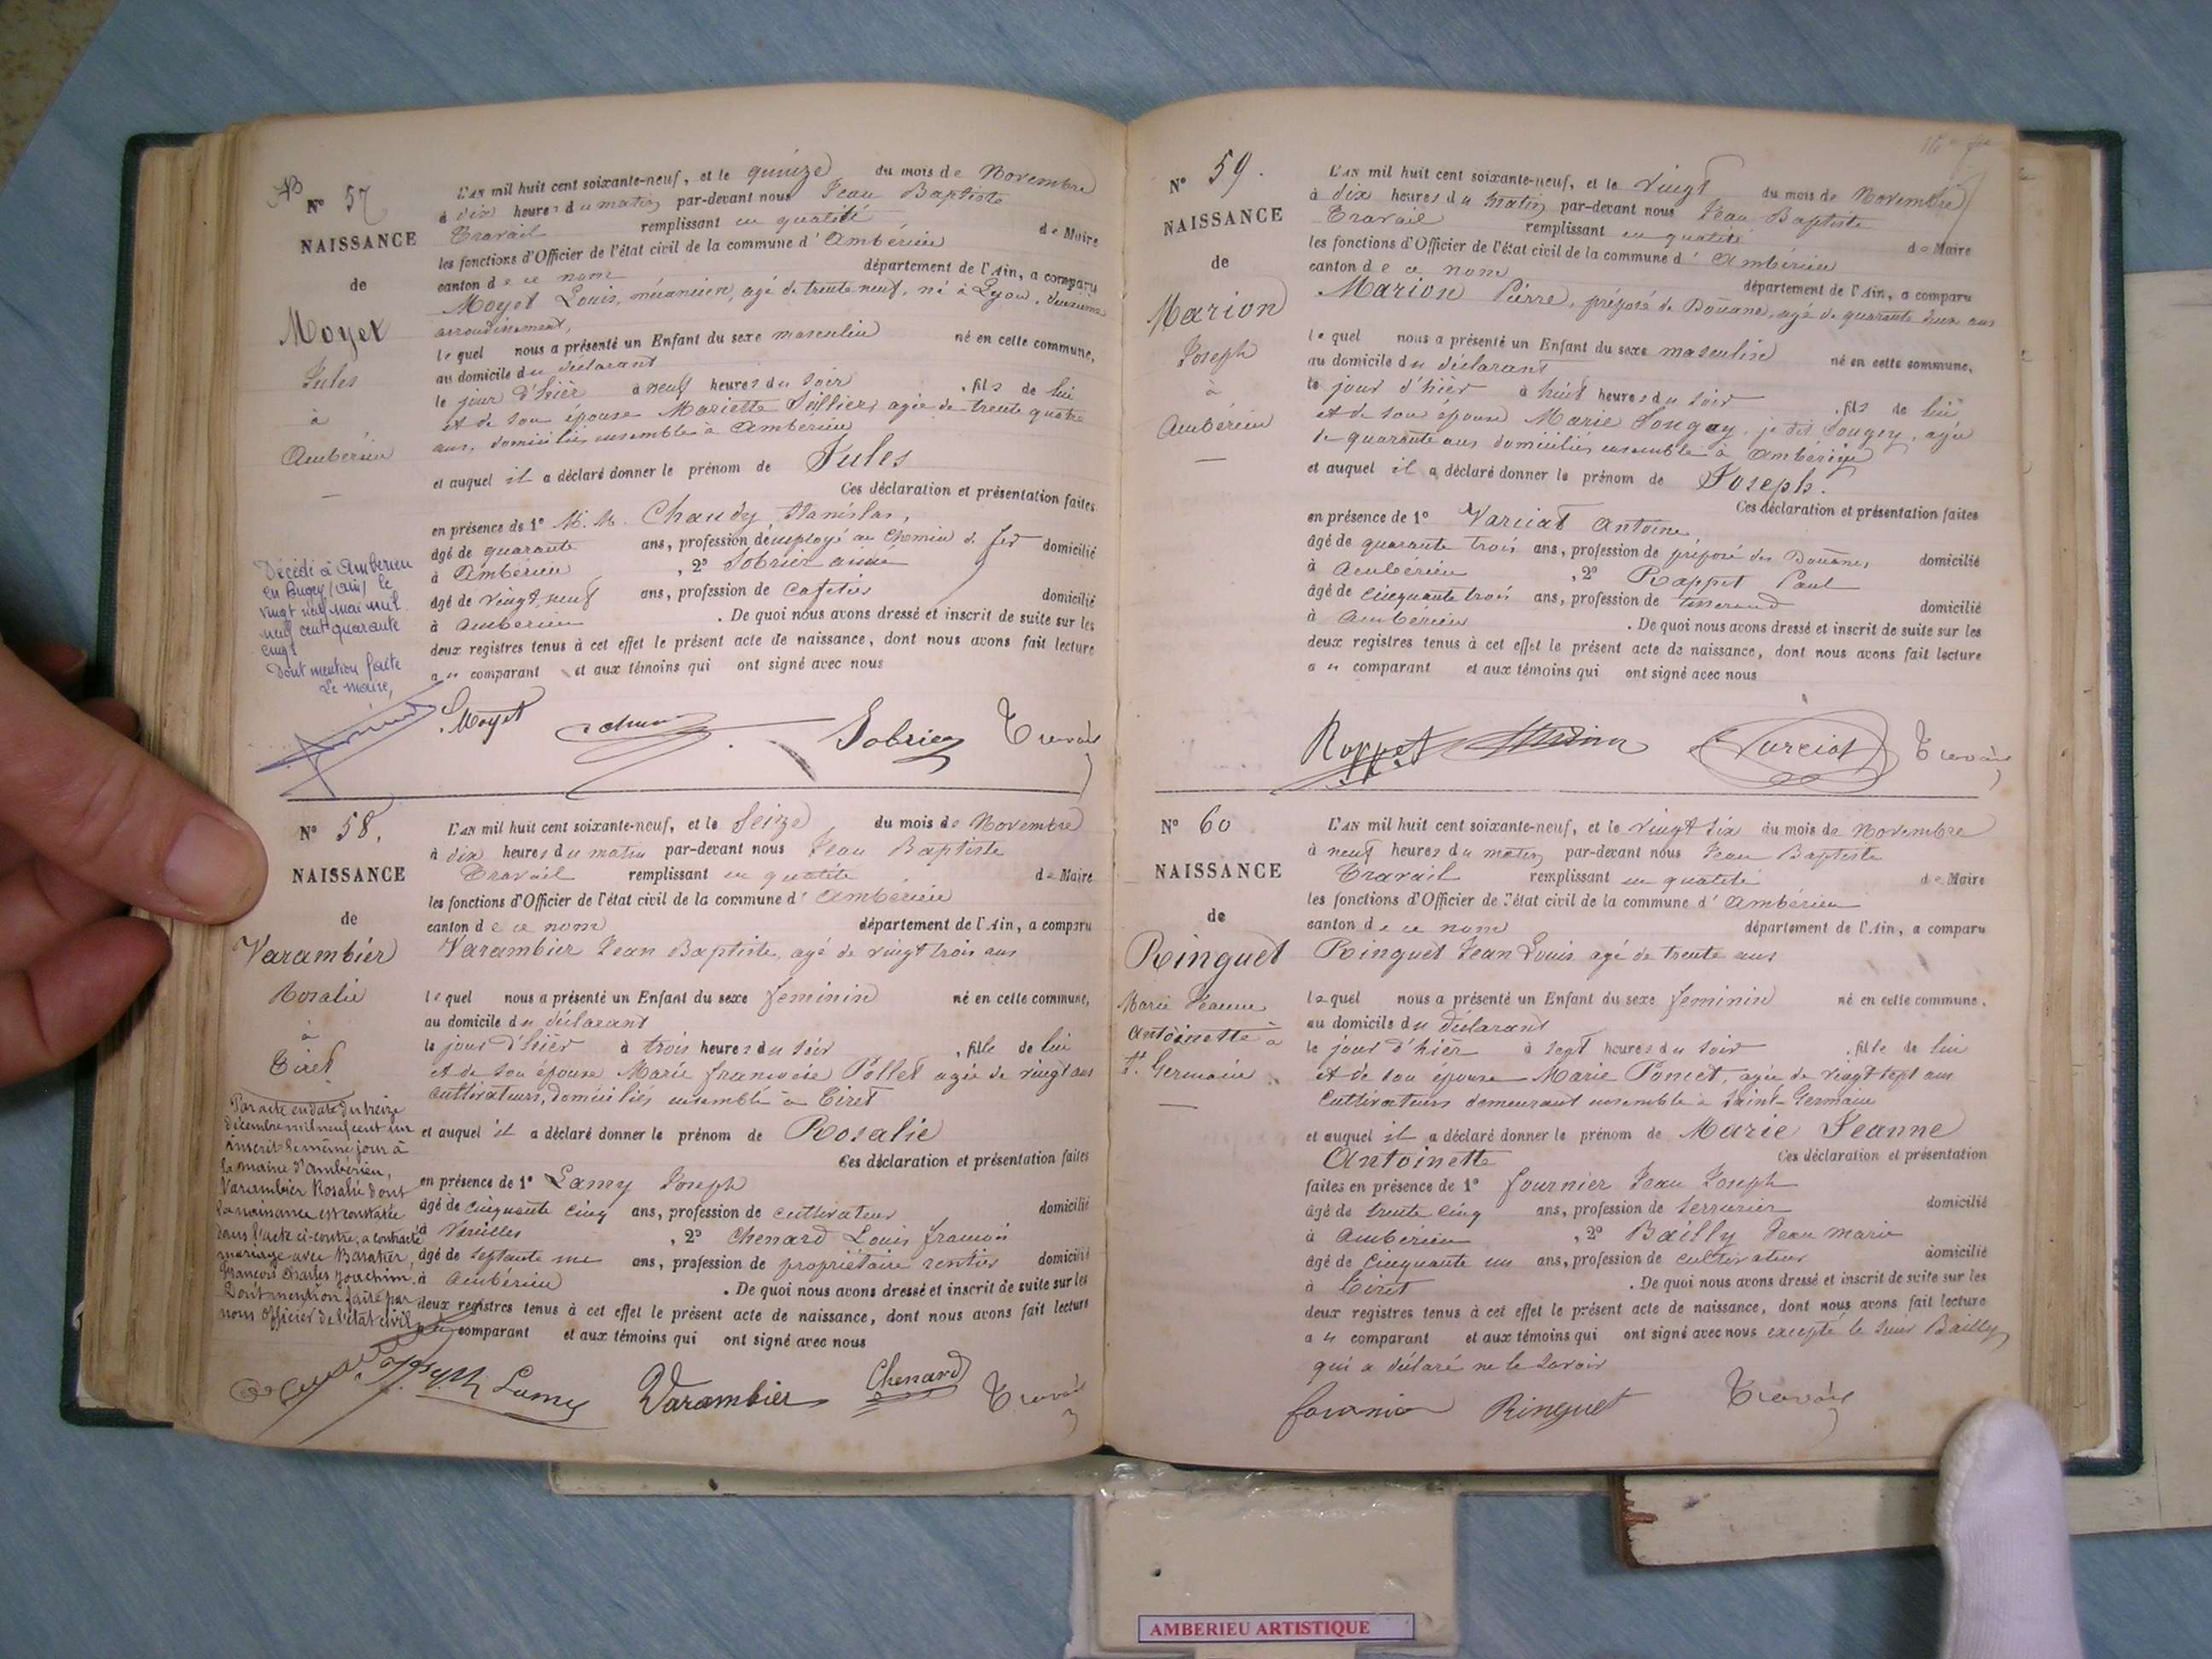 N° 57
NAISSANCE
de
Moyet
Jules
à
Ambérieu
L'AN mil huit cent soixante-neuf, et le quinze du mois de Novembre
à dix heures du matin par-devant nous Jean Baptiste
Travail remplissant en qualité de Maire
les fonctions d'Officier de l'état civil de la commune d'Ambérieu
canton de ce nom département de l'Ain, a comparu
Moyet Louis, mécanicien, agé de trente neuf, né à Lyon, deuxième
arrondissement,
lequel nous a présenté un Enfant du sexe masculin né en cette commune,
au domicile du déclarant
le jour d'hièr à neuf heures du soir , fils de lui
et de son épouse Mariette Seillier, agée de trente quatre
ans, domiciliés ensemble à Ambérieu
et auquel il a déclaré donner le prénom de Jules
Ces déclaration et présentation faites
en présence de 1° M. M. Chaudy, Stanislas,
âgé de quarante ans, profession d'employé au Chemin de fer domicilié
à Ambérieu , 2° Sobrier aimé
âgé de vingt neuf ans, profession de cafetier domicilié
à Ambérieu . De quoi nous avons dressé et inscrit de suite sur les
deux registres tenus à cet effet le présent acte de naissance, dont nous avons fait lecture
au comparant et aux témoins qui ont signé avec nous
Décédé à Ambérieu
en Bugey (Ain) le
vingt neuf mai mil
neuf cent quarante
cinq
Dont mention faite
Le maire,
Moyet Sobrier Travail
N° 58.
NAISSANCE
de
Varambier
Rosalie
à
Tiret
L'AN mil huit cent soixante-neuf, et le Seize du mois de Novembre
à dix heures du matin par-devant nous Jean Baptiste
Travail remplissant en qualité de Maire
les fonctions d'Officier de l'état civil de la commune d'Ambérieu
canton de ce nom département de l'Ain, a comparu
Varambier Jean Baptiste, agé de vingt trois ans
lequel nous a présenté un Enfant du sexe féminin né en cette commune,
au domicile du déclarant
le jour d'hièr à trois heures du soir , fille de lui
et de son épouse Marie françoise Pollet agée de vingt ans
cultivateurs, domiciliés ensemble à Tiret
et auquel il a déclaré donner le prénom de Rosalie
Ces déclaration et présentation faites
en présence de 1° Lamy Joseph
âgé de cinquante cinq ans, profession de cultivateur domicilié
à Vareilles , 2° Chenard Louis françois
âgé de septante un ans, profession de propriétaire rentier domicilié
à Ambérieu . De quoi nous avons dressé et inscrit de suite sur les
deux registres tenus à cet effet le présent acte de naissance, dont nous avons fait lecture
au comparant et aux témoins qui ont signé avec nous
Par acte en date du treize
décembre mil neuf cent un
inscrit le même jour à
la mairie d'Ambérieu,
Varambier Rosalie dont
la naissance est constatée
dans l'acte ci-contre, a contracté
mariage avec Baratier,
François Charles Joachim.
Dont mention faite par
nous officier de l'état civil
Joseph Lamy Varambier Chenard Travail
N° 59.
NAISSANCE
de
Marion
Joseph
à
Ambérieu
L'AN mil huit cent soixante-neuf, et le vingt du mois de Novembre
à dix heures du matin par-devant nous Jean Baptiste
Travail remplissant en qualité de Maire
les fonctions d'Officier de l'état civil de la commune d'Ambérieu
canton de ce nom département de l'Ain, a comparu
Marion Pierre, préposé de Douane, agé de quarante deux ans
lequel nous a présenté un Enfant du sexe masculin né en cette commune,
au domicile du déclarant
le jour d'hier à huit heures du soir , fils de lui
et de son épouse Marie Sougey, agée
de quarante ans domiciliés ensemble à Ambérieu
et auquel il a déclaré donner le prénom de Joseph.
Ces déclaration et présentation faites
en présence de 1° Varciat Antoine
âgé de quarante trois ans, profession de préposé des Douanes domicilié
à Ambérieu , 2° Rappet Paul
âgé de cinquante trois ans, profession de tisserand domicilié
à Ambérieu . De quoi nous avons dressé et inscrit de suite sur les
deux registres tenus à cet effet le présent acte de naissance, dont nous avons fait lecture
au comparant et aux témoins qui ont signé avec nous
Rappet Marion Varciat Travail
N° 60
NAISSANCE
de
Ringuet
Marie Jeanne
Antoinette à
St. Germain
L'AN mil huit cent soixante-neuf, et le vingt six du mois de Novembre
à neuf heures du matin par-devant nous Jean Baptiste
Travail remplissant en qualité de Maire
les fonctions d'Officier de l'état civil de la commune d'Ambérieu
canton de ce nom département de l'Ain, a comparu
Ringuet Jean Louis agé de trente ans
lequel nous a présenté un Enfant du sexe féminin né en cette commune.
au domicile du déclarant
le jour d'hièr à sept heures du soir , fille de lui
et de son épouse Marie Poncet, agée de vingt sept ans
cultivateurs demeurant ensemble à Saint-Germain
et auquel il a déclaré donner le prénom de Marie Jeanne
Antoinette Ces déclaration et présentation
faites en présence de 1° fournier Jean Joseph
âgé de trente cinq ans, profession de serrurier domicilié
à Ambérieu , 2° Bailly Jean marie
âgé de cinquante un ans, profession de cultivateur domicilié
à Tiret . De quoi nous avons dressé et inscrit de suite sur les
deux registres tenus à cet effet le présent acte de naissance, dont nous avons fait lecture
au comparant et aux témoins qui ont signé avec nous excepté le sieur Bailly
qui a déclaré ne le savoir
fournier Ringuet Travail
AMBERIEU ARTISTIQUE